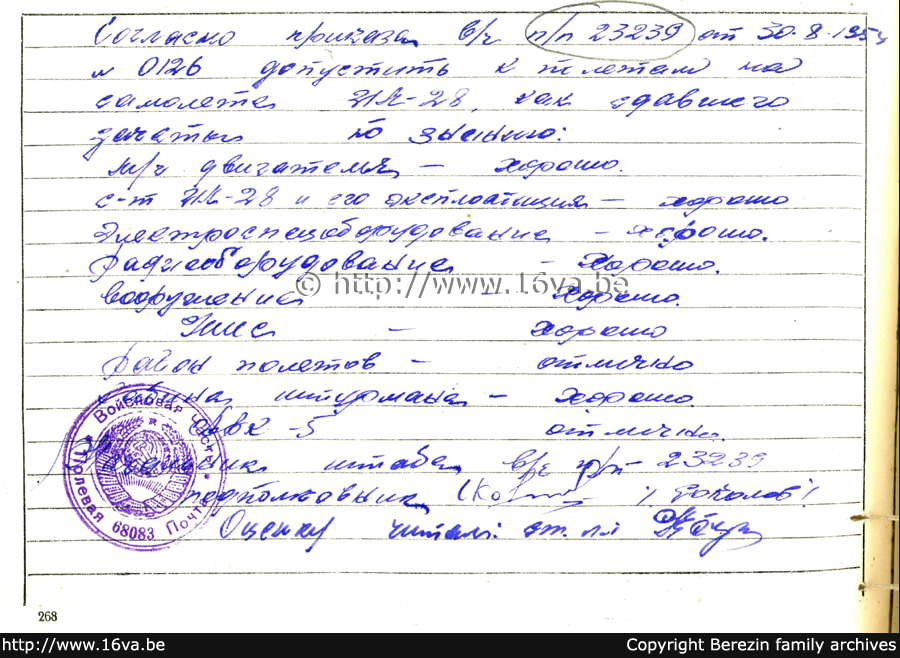 Согласно приказа в/ч п/п 23239 от 30.8.1954
№ 0126 допустить к полетам на
самолете ИЛ-28, как сдавшего
зачеты по знанию:
м/ч двигателя – хорошо.
с-т ИЛ-28 и его эксплоатация – хорошо
Электроспецоборудование – хорошо.
Радиооборудование – хорошо.
© http://www.16va.be
вооружение – хорошо.
– хорошо
район полетов – отлично
кабина штурмана – хорошо.
-5 отлично.
Начальник штаба в/ч п/п 23239
подполковник /Соколов/
Оценку читал: ст. л-т
Войсковая часть * Полевая Почта * 68083
268
http://www.16va.be
Copyright Berezin family archives